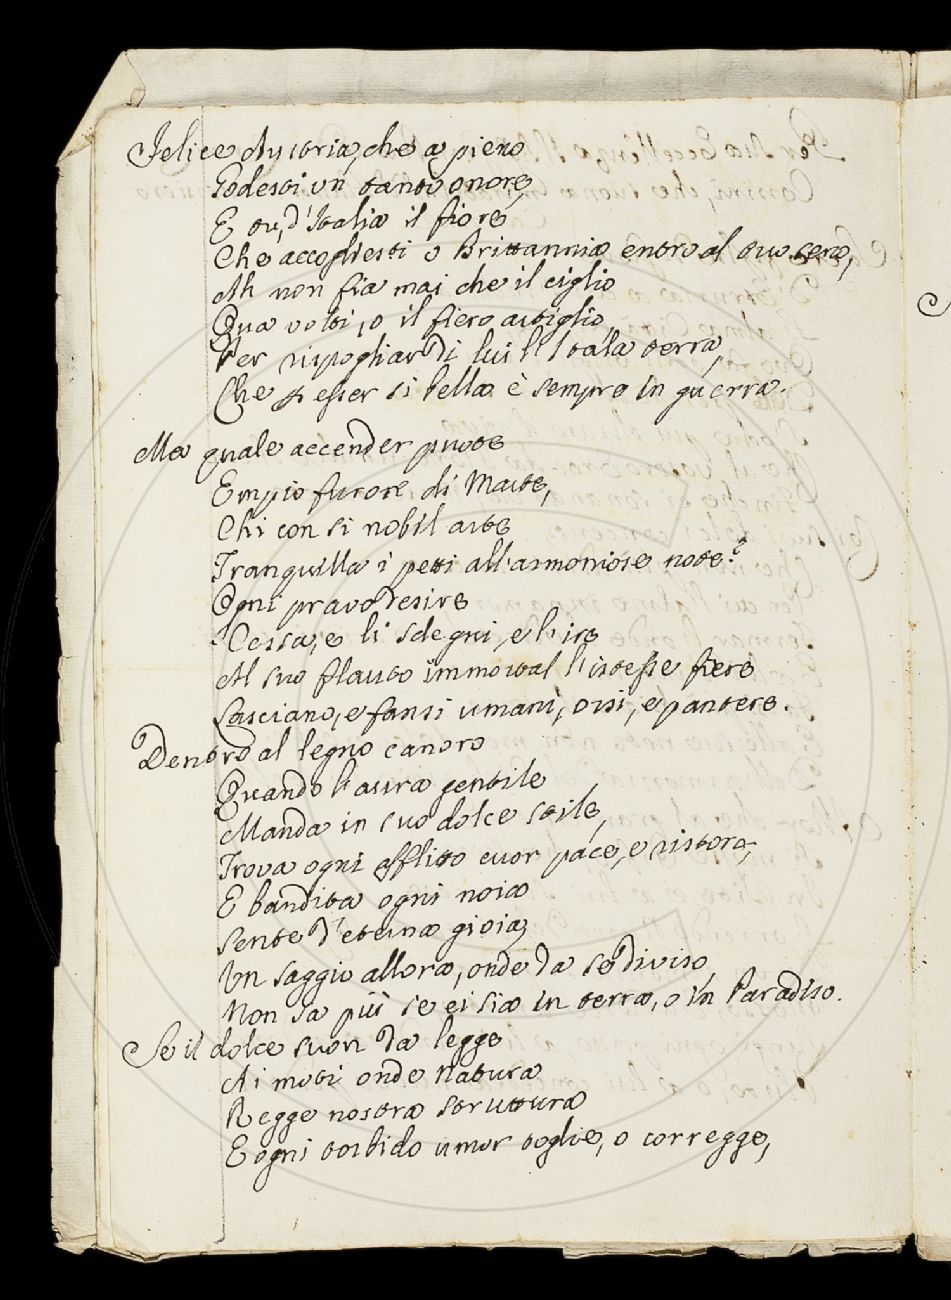 Felice Austria, che a pieno
Godesti un tanto onore,
E tu, d'Italia il fiore
Che accogliesti o Brittannia entro al tuo seno,
Ah non fia mai che il ciglio
Qua volti, o il fiero artiglio,
Per rispogliar di lui l'Itala terra,
Che p esser si bella è sempre in guerra.
Ma quale accender puote
Empio furore di Marte,
Chi con si nobil arte
Tranquilla i petti all'armoniose note?
Ogni pravo desire
Cessa, e li sdegni, e l'ire
Al suo flauto immortal l'istesse fiere
Lasciano, e fansi umani, orsi, e pantere.
Dentro al legno canoro
Quando l'aura gentile
Manda in suo dolce stile,
Trova ogni afflitto cuor pace, e ristoro,
E bandita ogni noia
Sente d'eterna gioia
Un saggio allora, onde da se diviso
Non sa più se ei sia in terra, o in Paradiso.
Se il dolce suon da legge
Ai moti onde Natura
Regge nostra struttura
E ogni torbido umor toglie, o corregge,